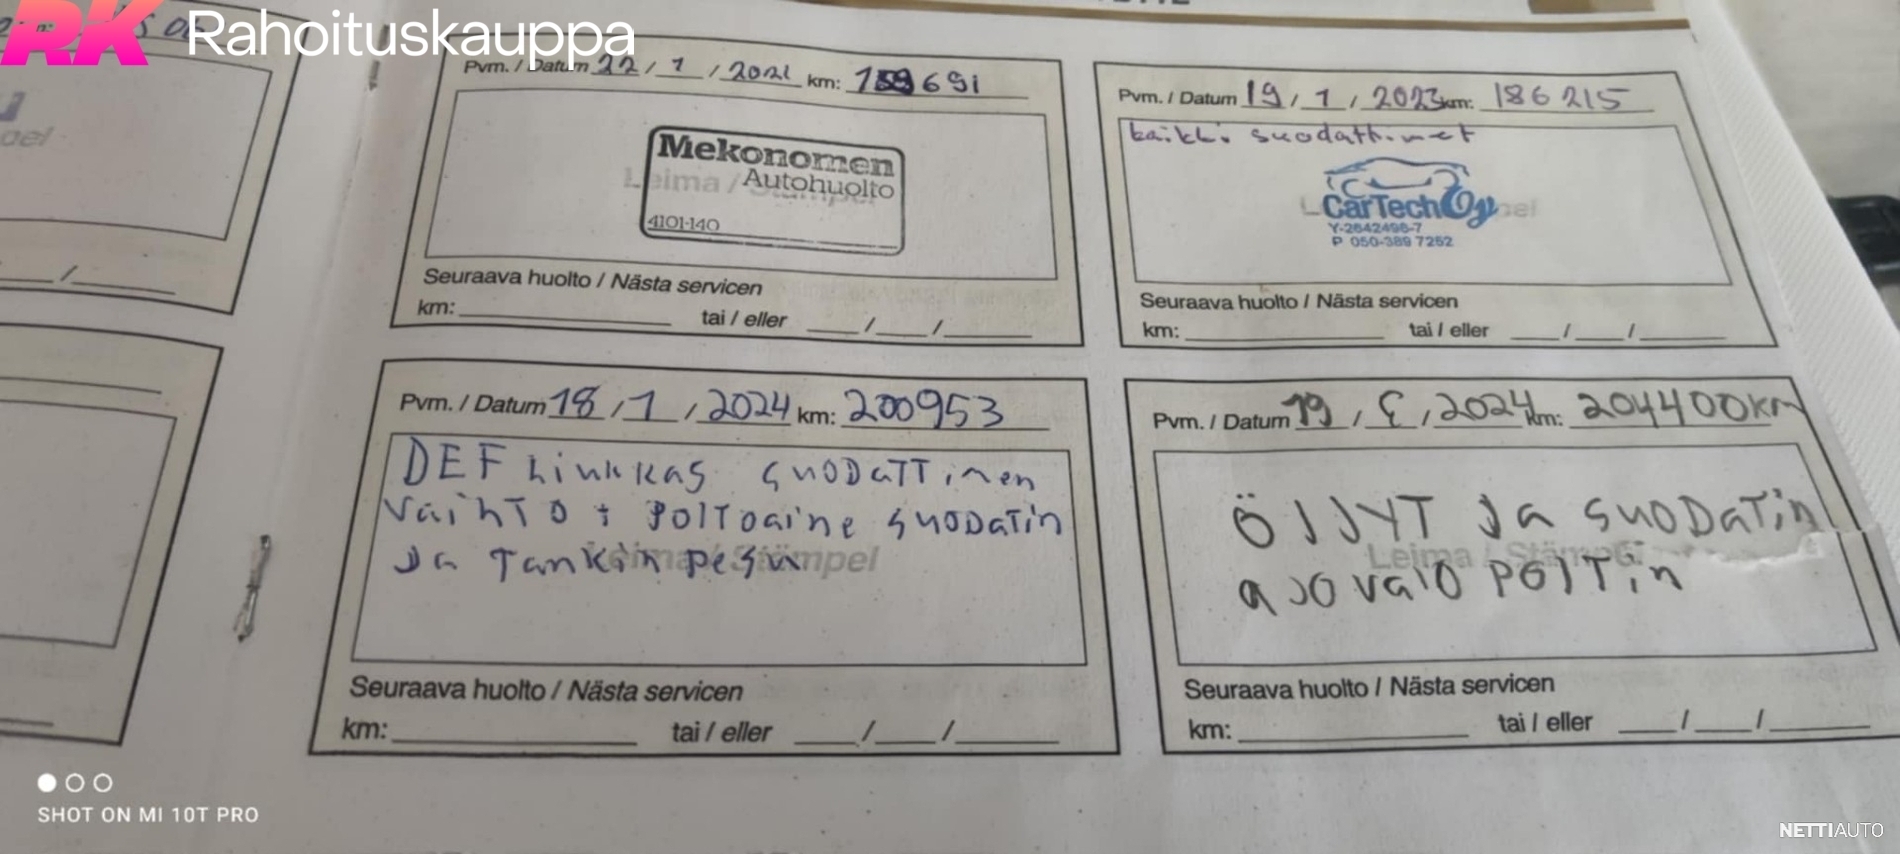 RK Rahoituskauppa
Pvm. / Datum 22 / 1 / 2021 km:
Mekonomen
Autohuolto
Leima / Stämpel
4101-140
Seuraava huolto / Nästa servicen
km: tai / eller / /
Pvm. / Datum 19 / 1 / 2023 km: 186215
kaikki suodattimet
CarTech Oy
Y-2642496-7
P 050-389 7252
Seuraava huolto / Nästa servicen
km: tai / eller / /
Pvm. / Datum 18 / 1 / 2024 km: 200953
DEF Liuhkas suodattimen
vaihto + poltoaine suodatin
ja tankin pesu
Leima / Stämpel
Seuraava huolto / Nästa servicen
km: tai / eller / /
Pvm. / Datum 19 / / 2024 km: 204400km
ÖJJYT ja suodatin
Leima / Stämpel
ajovalo poltin
Seuraava huolto / Nästa servicen
km: tai / eller / /
SHOT ON MI 10T PRO
NETTIAUTO